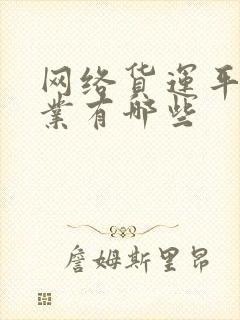 网络货运平
业有哪些
詹姆斯里昂